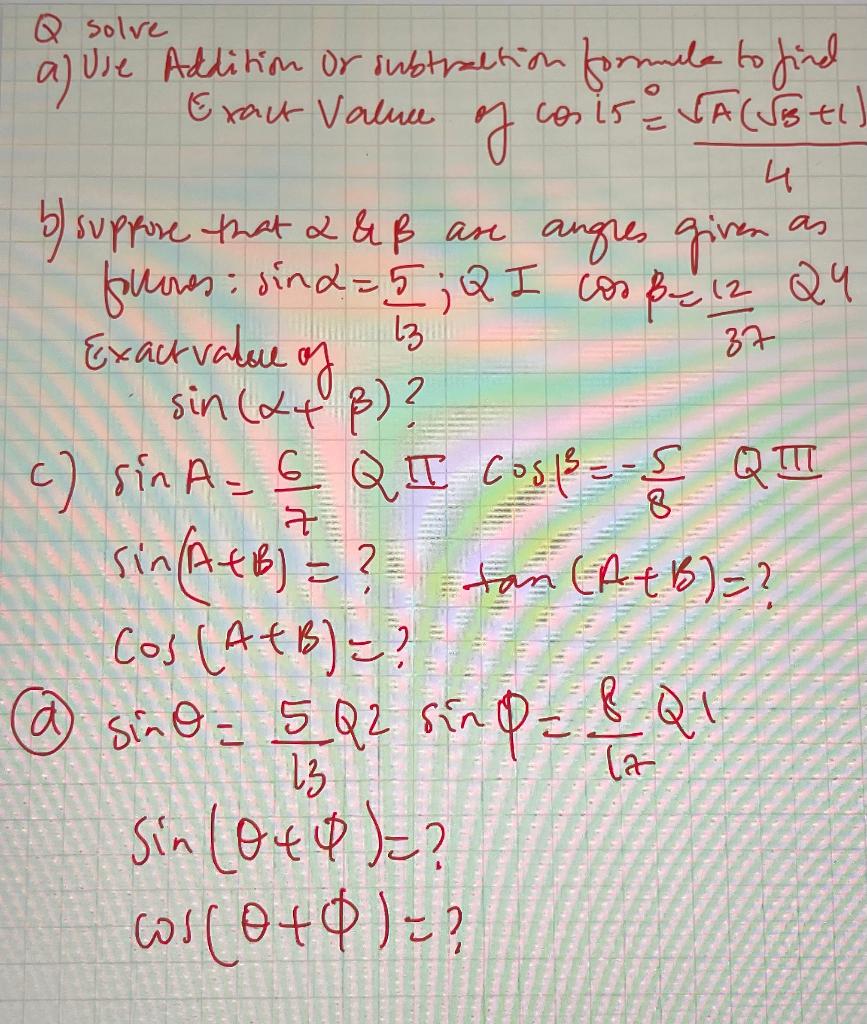 Q solve
a) Use Addition or subtraction formula to find
Exact Value of cos 15° = √A(√B +1)
4
b) suppose that α & β are angles given as
follows : sin α = 5 ; Q I cos β = 12 Q4
13 37
Exact value of
sin (α + β) ?
c) sin A = 6 Q II cos β = - 5 Q III
7 8
sin(A+B) = ? tan (A+B)=?
cos (A+B) = ?
d sin θ = 5 Q2 sin φ = 8 Q1
13 17
sin (θ+φ)=?
cos(θ+φ)=?